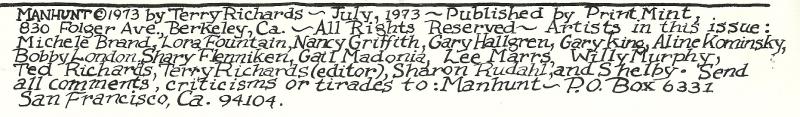 MANHUNT ©1973 by Terry Richards ~ July, 1973 ~ Published by Print Mint,
830 Folger Ave., Berkeley, Ca. ~ All Rights Reserved ~ Artists in this issue:
Michele Brand, Lora Fountain, Nancy Griffith, Gary Hallgren, Gary King, Aline Kominsky,
Bobby London, Shary Flenniken, Gail Madonia, Lee Marrs, Willy Murphy,
Ted Richards, Terry Richards (editor), Sharon Rudahl, and Shelby. Send
all comments, criticisms or tirades to: Manhunt ~ P.O. Box 6331
San Francisco, Ca. 94104.